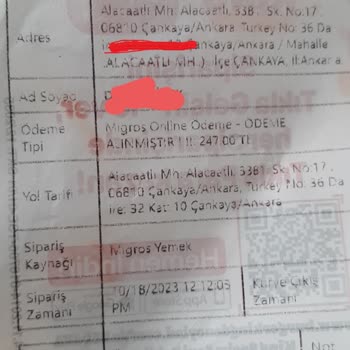 Alacaatlı Mh. Alacaatlı, 3381. Sk. No:17 ,
06810 Çankaya/Ankara, Turkey No: 36 Da
Adres
ankaya, Ankara / Mahalle
ALACAATLI MH.) İlçe ÇANKAYA, İl:Ankara
Ad Soyad
Ödeme Tipi
Migros Online Ödeme - ÖDEME
ALINMIŞTIR ! !! 247.00 TL
Yol Tarifi
Alacaatlı Mh. Alacaatlı, 3381. Sk. No:17 ,
06810 Çankaya/Ankara, Turkey No: 36 Da
ire: 32 Kat: 10 Çankaya/Ankara
Sipariş Kaynağı
Migros Yemek
Hemen İndir
Sipariş Zamanı
10/18/2023 12:12:05
PM
Kurye Çıkış
Zamanı
Not